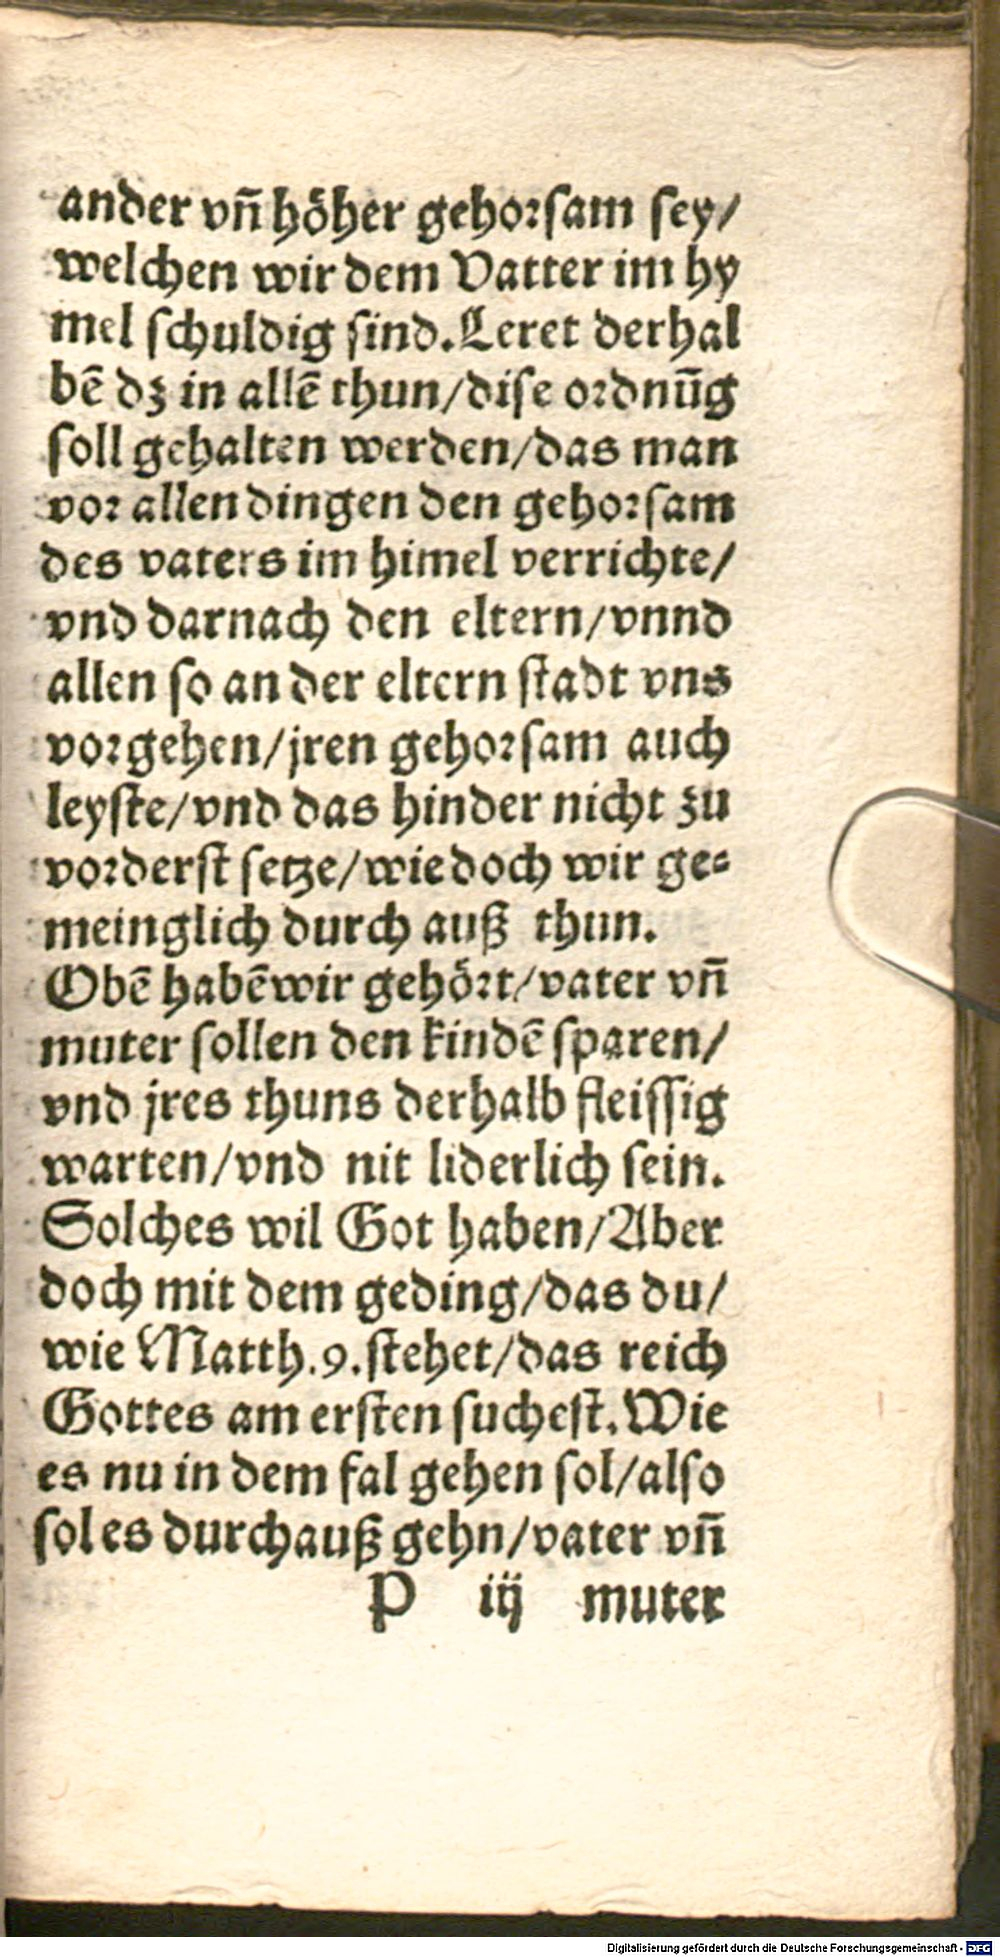 ander vñ höher gehorsam sey/
welchen wir dem Vatter im hy
mel schuldig sind. Leret derhal
bē dz in allē thun/dise ordnūg
soll gehalten werden/das man
vor allen dingen den gehorsam
des vaters im himel verrichte/
vnd darnach den eltern/vnnd
allen so an der eltern stadt vns
vorgehen/jren gehorsam auch
leyste/vnd das hinder nicht zu
vorderst setze/wie doch wir ge-
meinglich durch auß thun.
Obē habē wir gehört/vater vñ
muter sollen den kindē sparen/
vnd jres thuns derhalb fleissig
warten/vnd nit liderlich sein.
Solches wil Got haben/Aber
doch mit dem geding/das du/
wie Matth.9.stehet/das reich
Gottes am ersten suchest. Wie
es nu in dem fal gehen sol/also
sol es durchauß gehn/vater vñ
P iij muter
Digitalisierung gefördert durch die Deutsche Forschungsgemeinschaft - DFG